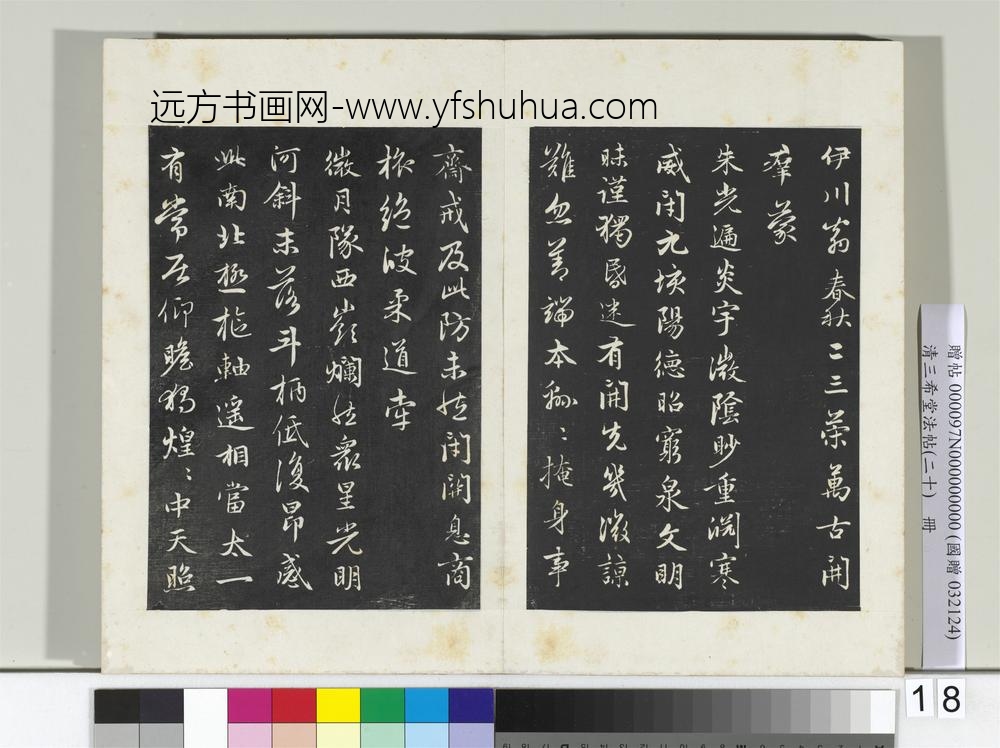 远方书画网-www.yfshuhua.com
伊川翁春秋二三策萬古開
羣蒙
朱光遍炎宇微陰眇重淵寒
威閉九陽德昭窮泉文明
昧謹獨昏迷有開先幾微諒
難忽善端本綿〻掩身事
齋戒及此防未然閉關息商
旅絕彼柔道牽
微月隊西嶺爛然衆星光明
河斜未落斗柄低復昂感
此南北極樞軸遥相當太一
有常居仰瞻獨煌〻中天照
贈帖 000097N000000000 (國贈 032124)
清三希堂法帖(二十) 冊
18